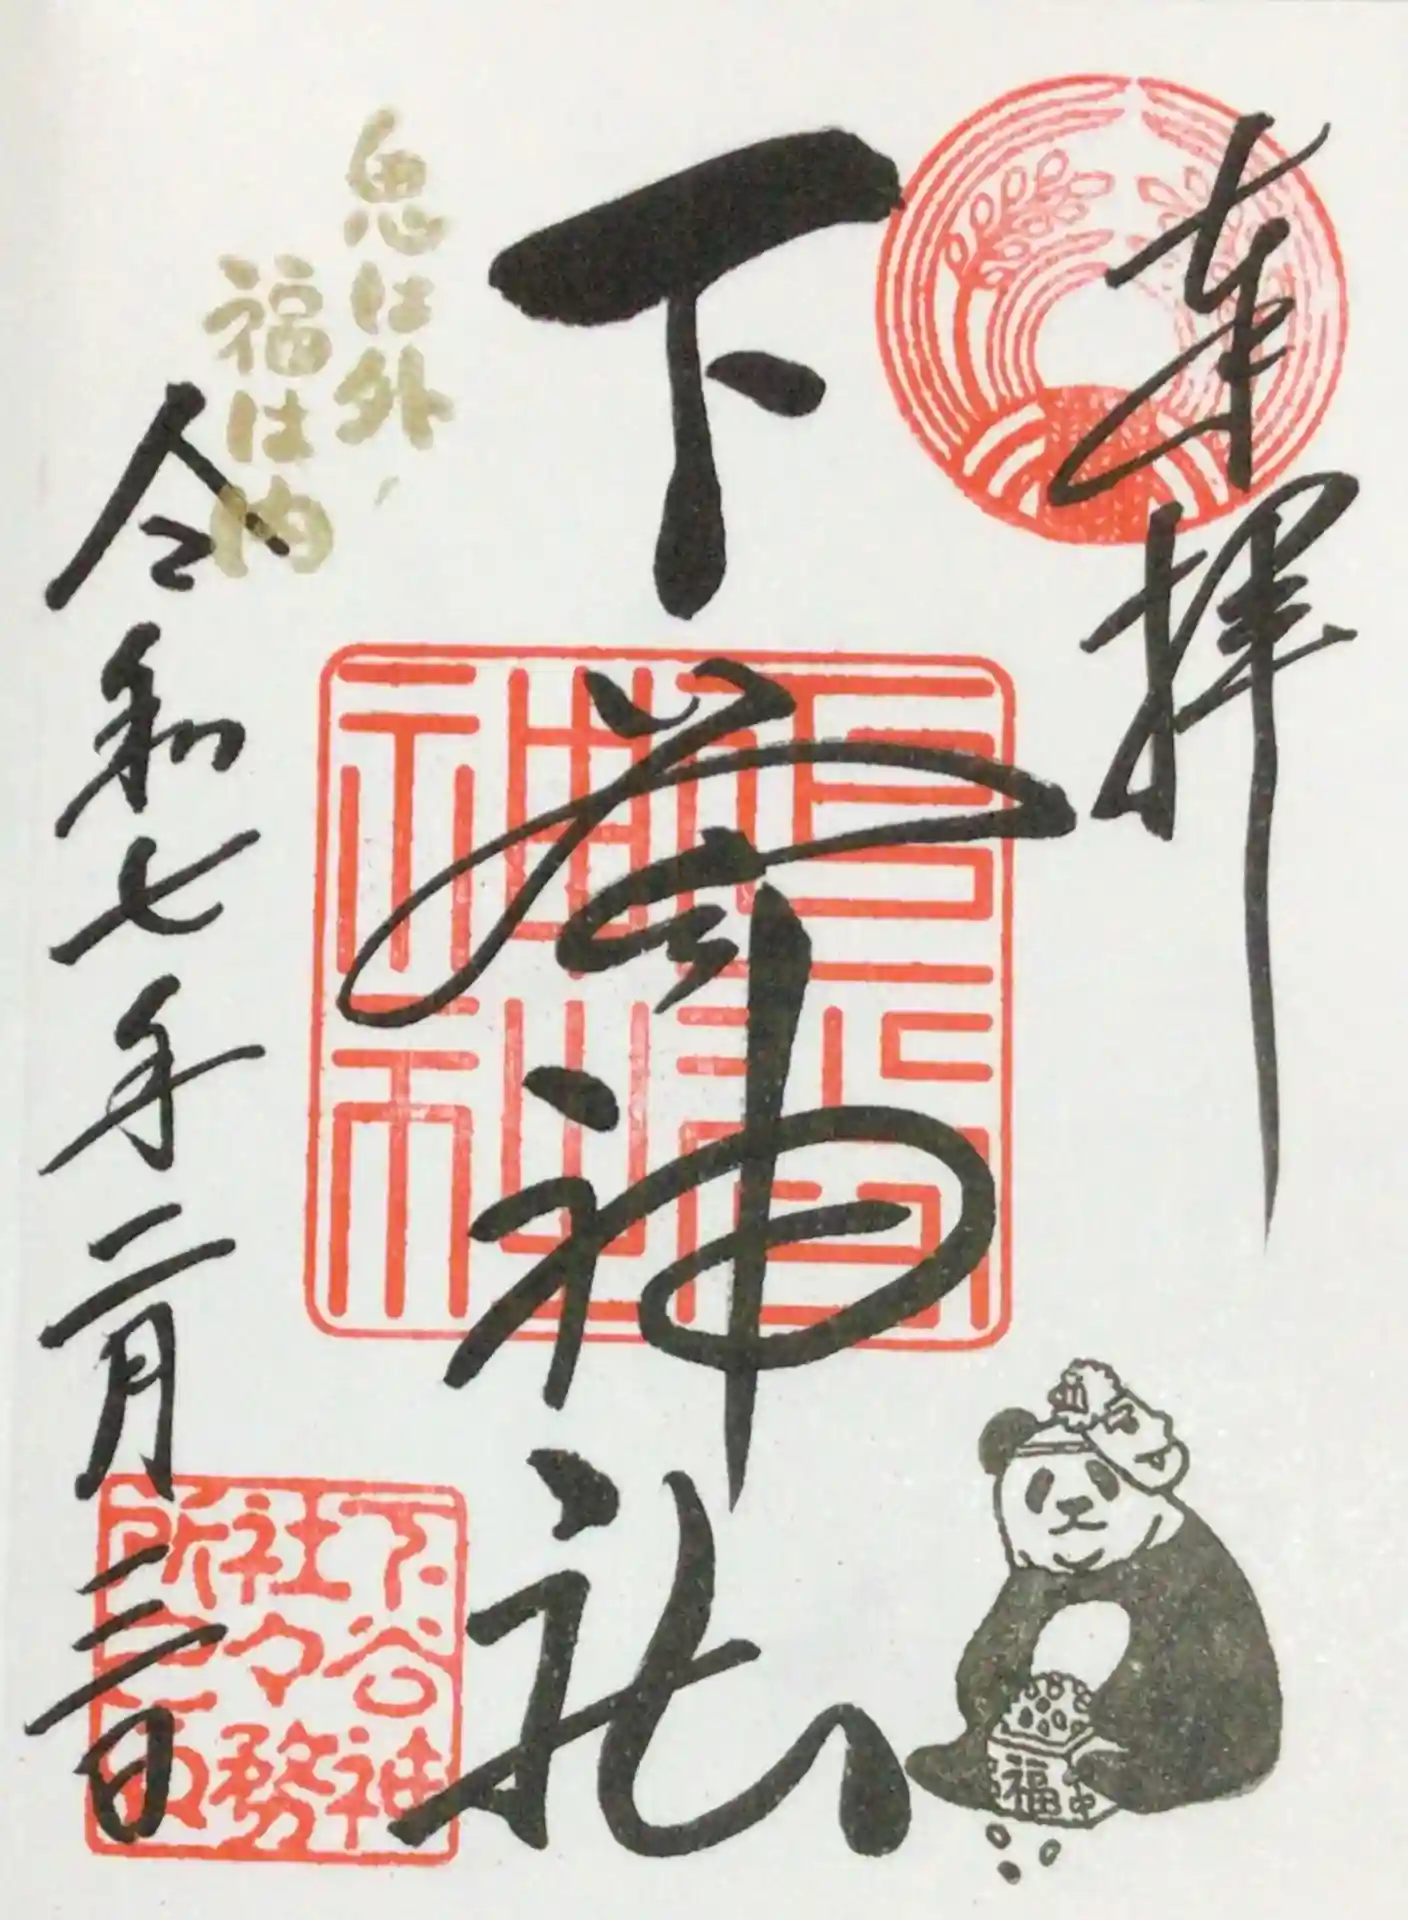 奉拝
下谷神社
鬼は外
福は内
令和七年二月二日
下谷神
社々務
所之印
福